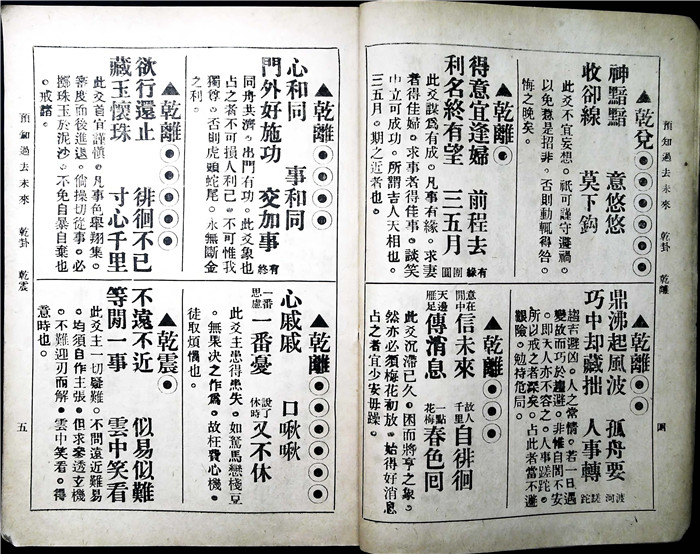 預知過去未來 乾卦 乾離
四
▲乾兌
神黯黯 意悠悠
收卻線 莫下鈎
此爻不宜妄想。祇可謹守灑禍。
以免惹是招非。否則動輒得咎。
悔之晚矣。
▲乾離
鼎沸起風波 孤舟要渡河
巧中却藏拙 人事轉蹉跎
趨吉避凶。人之常情。若一旦遇
變故而巧於趨避。非惟自問不安
。即天人亦不容之。人事蹉跎。
所以戒之者深矣。占此者當不避
艱險。勉持危局。
▲乾離
得意宜逢婦 前程去有緣
利名終有望 三五月團圓
此爻謀爲有成。凡事有緣。求妻
者得佳婦。求事者得佳事。談笑
中立可成功。所謂吉人天相也。
三五月。期之近者也。
▲乾離
意在閒中信未來 故人千里自徘徊
天邊雁足傳消息 一點花梅春色回
此爻沉滯已久。困而將亨之象。
然亦必須梅花初放。始得好消息
占之者宜少安毋躁。
▲乾離
心和同 事和同
門外好施功 交加事有終
同舟共濟。出門有功。此爻象也
占之者不可損人利己。不可惟我
獨尊。否則虎頭蛇尾。永無斷金
之利。
▲乾離
心戚戚 口啾啾
一番思慮一番憂 說了休時又不休
此爻主患得患失。如駑馬戀棧豆
。無果決之作爲。故枉費心機。
徒取煩惱也。
▲乾離
欲行還止 徘徊不已
藏玉懷珠 寸心千里
此爻首宜謹愼。凡事色舉翔集。
審度而後進退。倘操切從事。必
擲珠玉於泥沙。不免自暴自棄也
。戒諸。
▲乾震
不遠不近 似易似難
等閒一事 雲中笑看
此爻主一切疑難。不問遠近難易
。均須自作主張。但求參透玄機
。不難迎刃而解。雲中笑看。得
意時也。
預知過去未來 乾卦 乾震
五